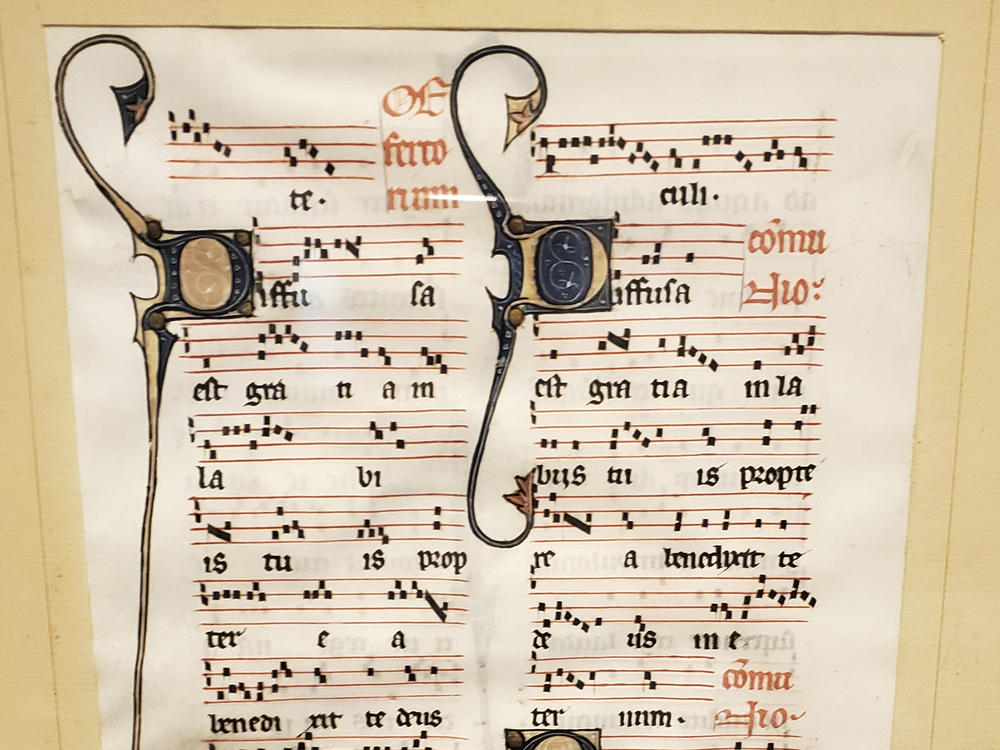 te.
Offerto
rium
Diffu sa
est gra ti a in
la bi
is tu is prop
ter e a
benedi xit te deus
culi.
Diffusa
cōmu
nio.
est gra tia in la
bijs tu is propte
re a benedyxit te
de us in e
ter num.
cōmu
nio.